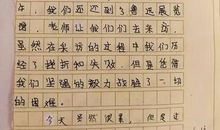 午，我们还来到了鲁迅展览
馆，老师让我们们去采访，
虽然在采访的过程中我们历
经了挫折和失败，但是凭借
我们坚强的毅力战胜了一切
的困难。
今天虽然很累，但是过